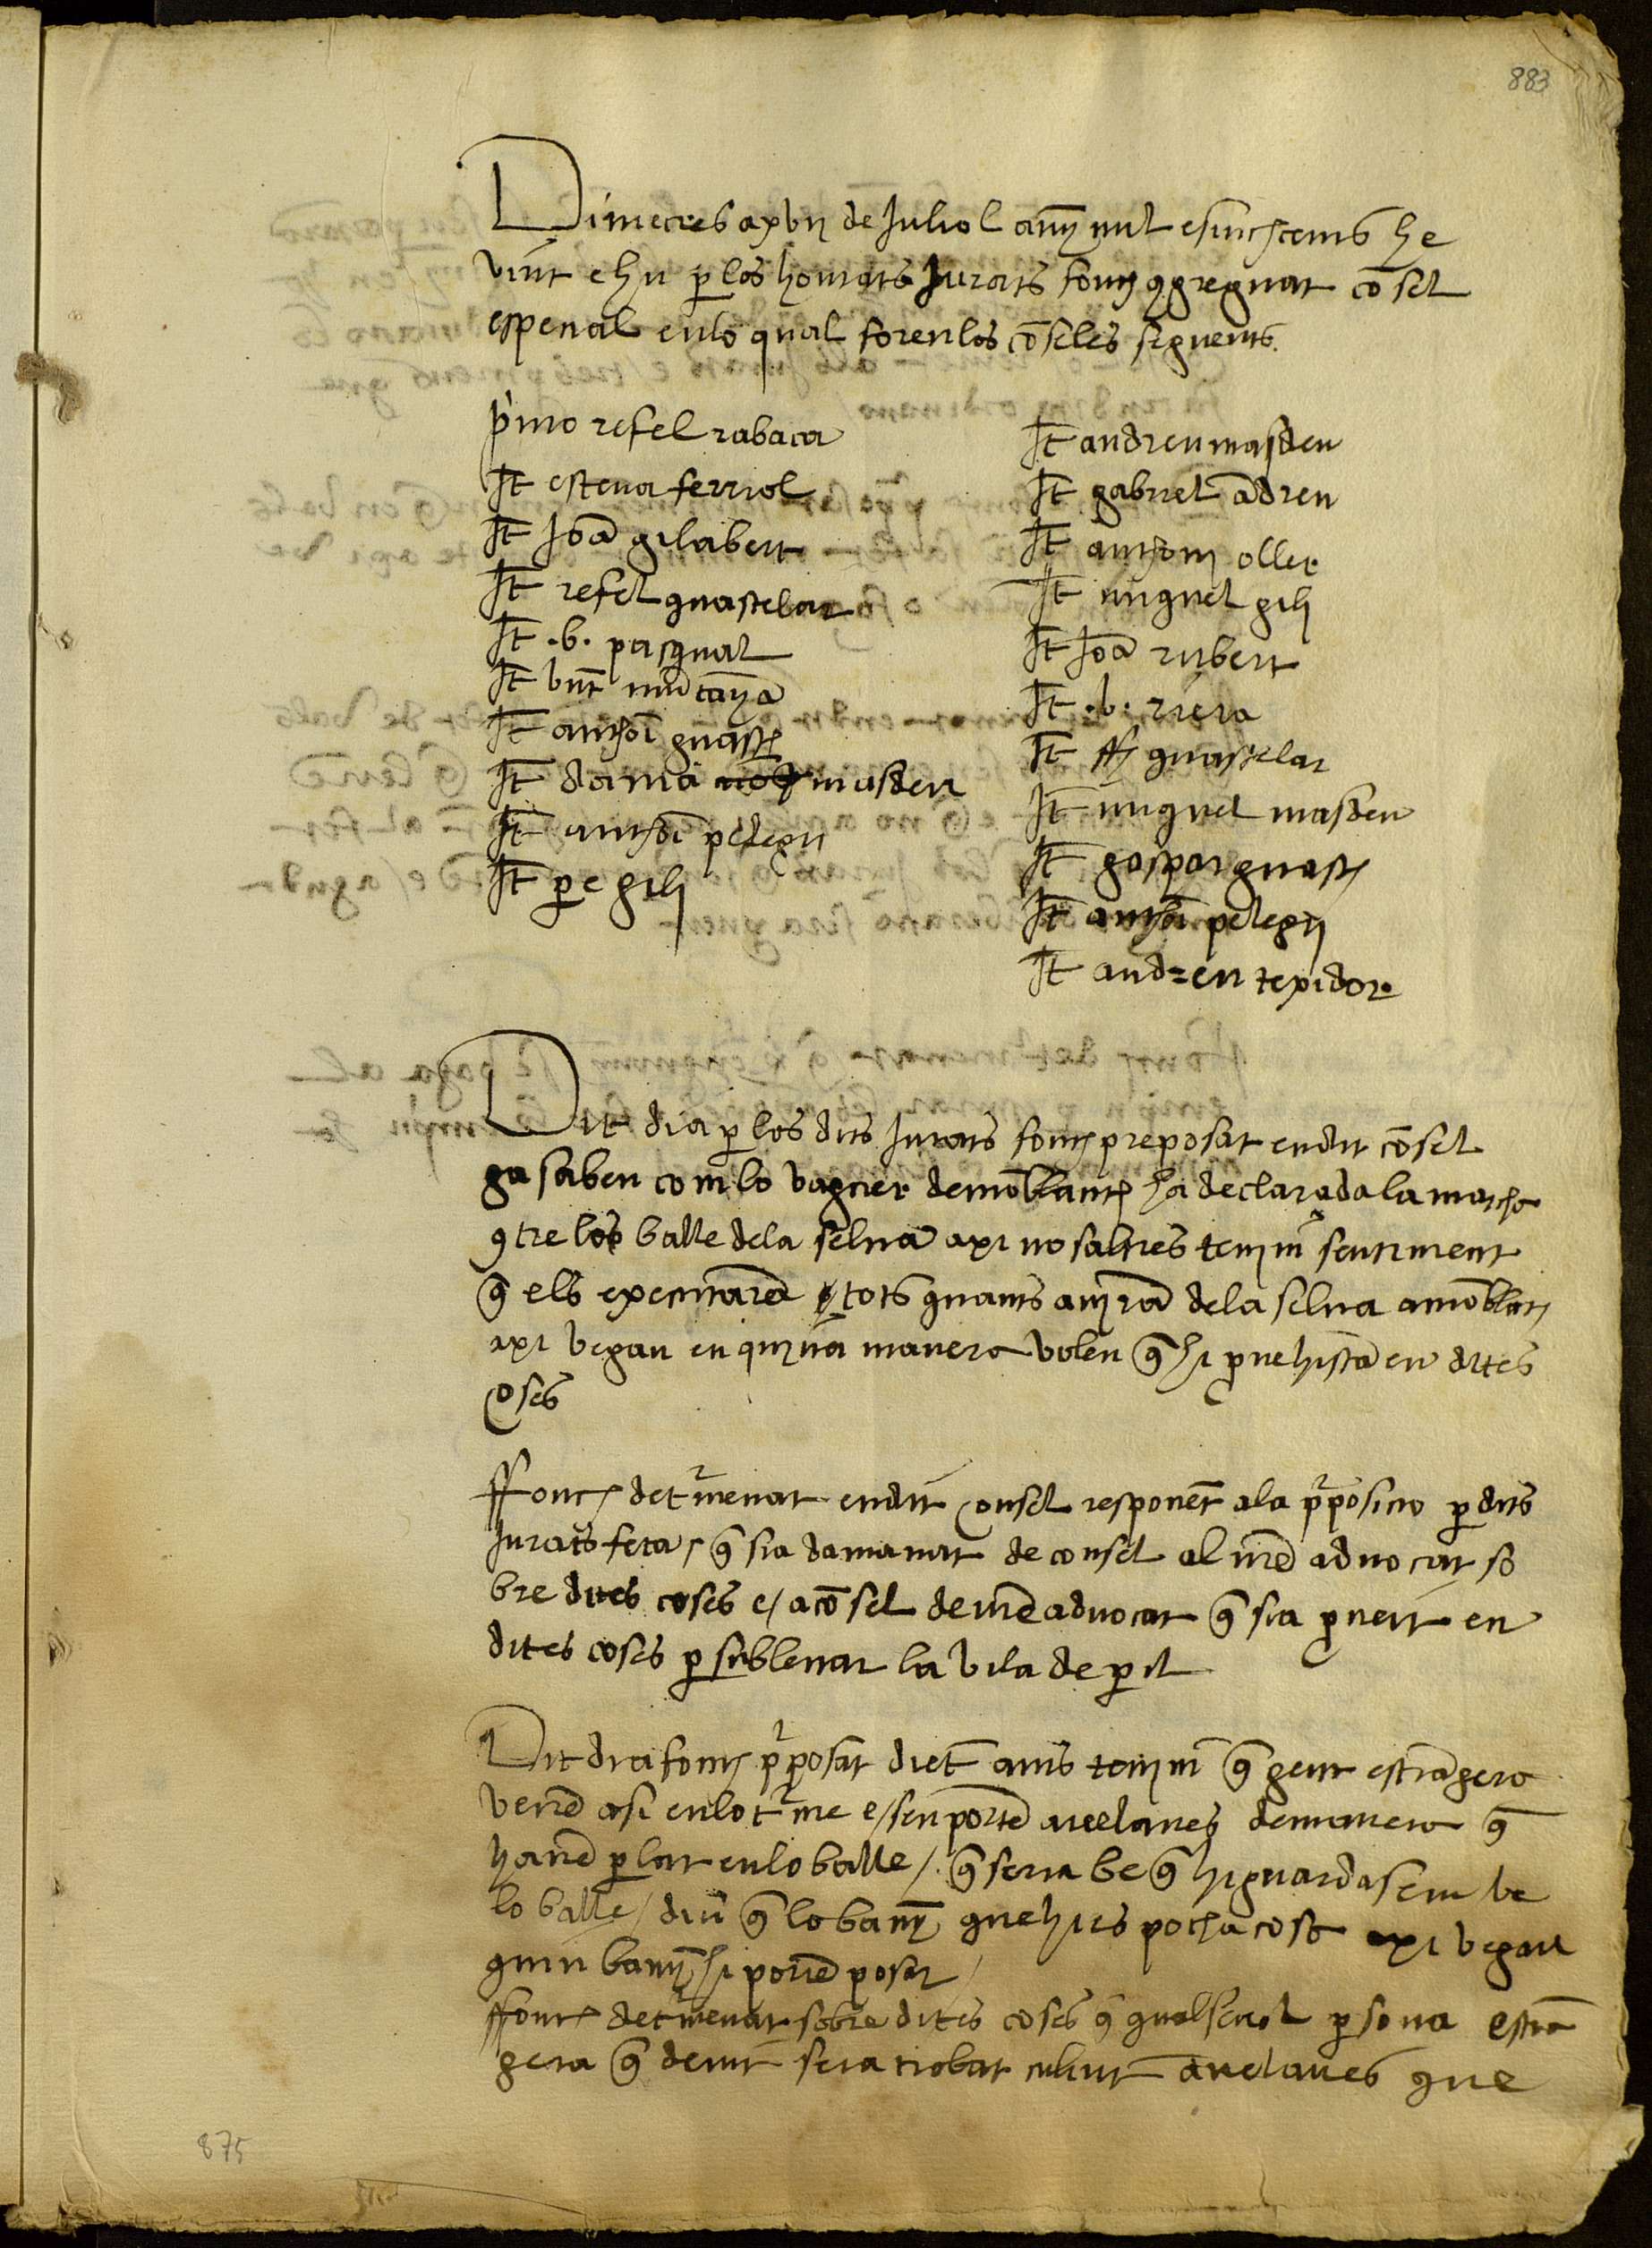 883
Dimecres a xvij de Juliol anẏ mil e sinchcents he
vint e hu p los honrats Jurats fonch ꝯgreguat cōsel
espetial en lo qual foren los cōseles seguents
pͥmo refel rabaca
It esteua ferriol
It Joā gilabert
It refel guastelar
It .b. pasqual
It vnt mūtanya
It anthōi guasch
It dama masdeu
It anthōi pelegri
It pe gili
It andreu masdeu
It gabriel ādreu
It anthoni oller
It miquel gili
It Joā rubert
It .b. riera
It ff guastelar
It miquel masdeu
It gaspar guasch
It anthōi pelegri
It andreu texidor
Dit dia p los dits Jurats fonch preposat en dit cōsel
ga saben com lo vaguer de mōblanch ha declarada la marcha
ꝯtre los balle de la selua axi nosaltres tenim sentiment
q̄ els executarā tots quants anirā de la selua a mōblanch
axi vegau en quina manera volen q̄ hi prouehiscā en dites
coses
ffonch detͬmenat en dit consel responēt a la pͬposicio p dits
Jurats feta / q̄ sia damanat de consel al nr̄e aduocat so
bre dites coses e / a cōsel de nr̄e aduocat q̄ sia proueit en
dites coses p subleuar la vila de pil
Dit dia fonch pͬposat diēt auis tenim q̄ gent estrāgera
venē asi en lo tͬme e / sen portē auelanes de manera q̄
hauē parlat en lo balle / q̄ seria be q̄ hi guardasem be
lo balle / diu q̄ lo banẏ que hi es pocha cosa axi vegau
quin banẏ hi porē posar
ffonch detͬmenat sobre dites coses q̄ qualseuol psona estrā
gera q̄ sera trobat culint auelanes que
875